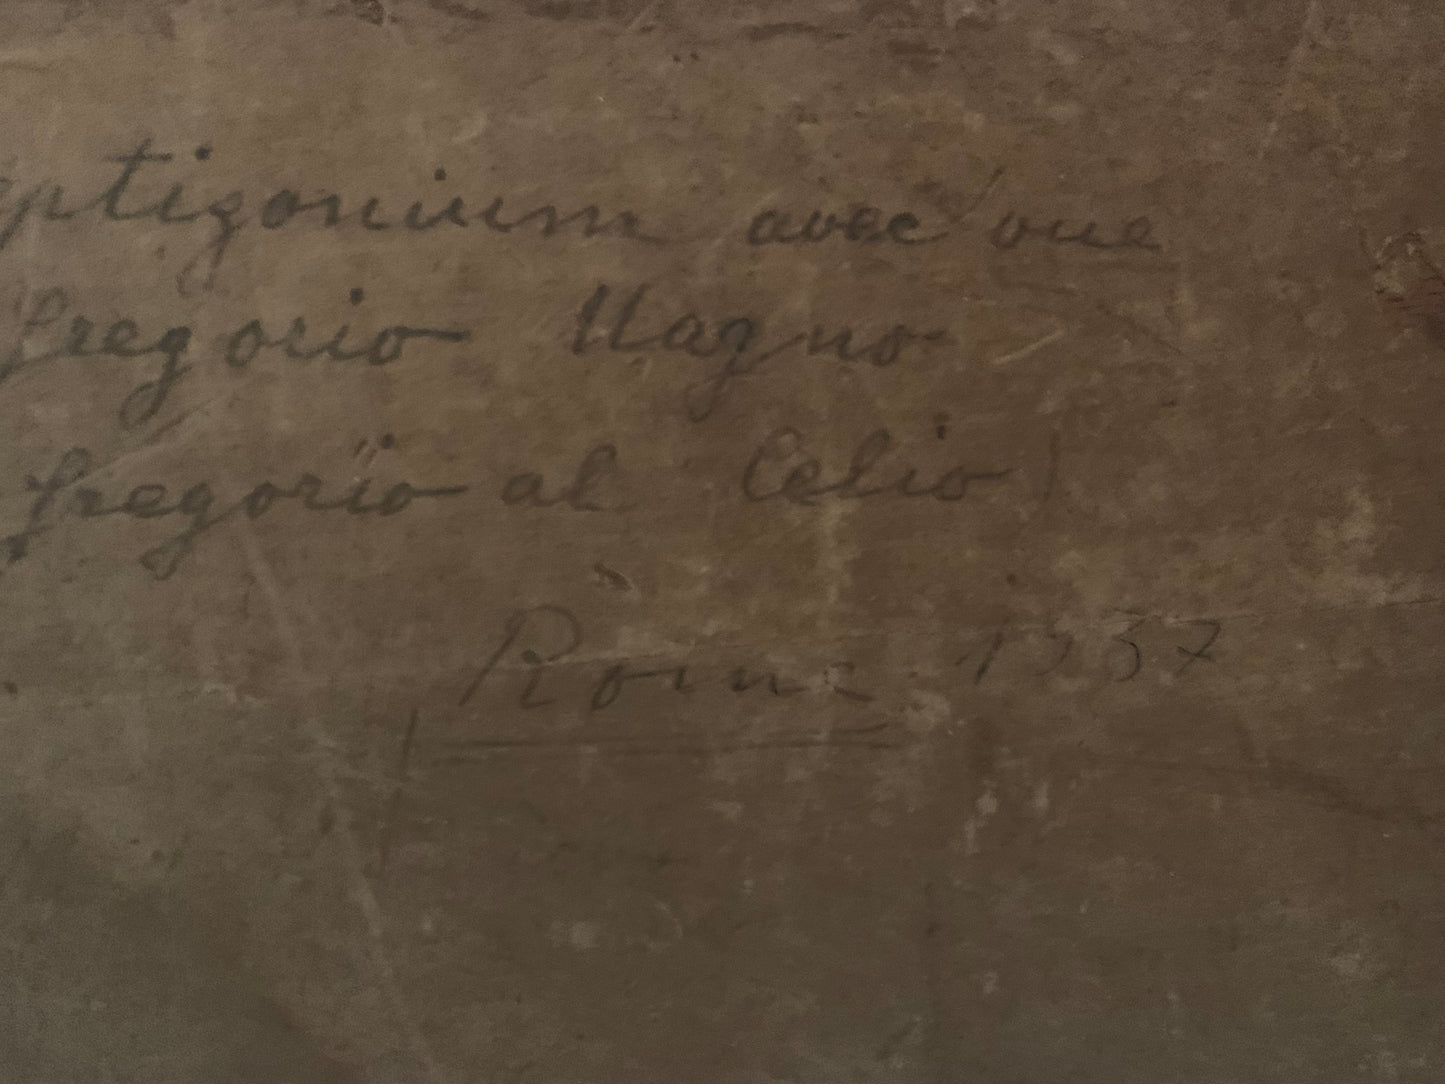 eptizonium avec vue
Gregorio Magno
Gregorio al Celio)
Rome 1957